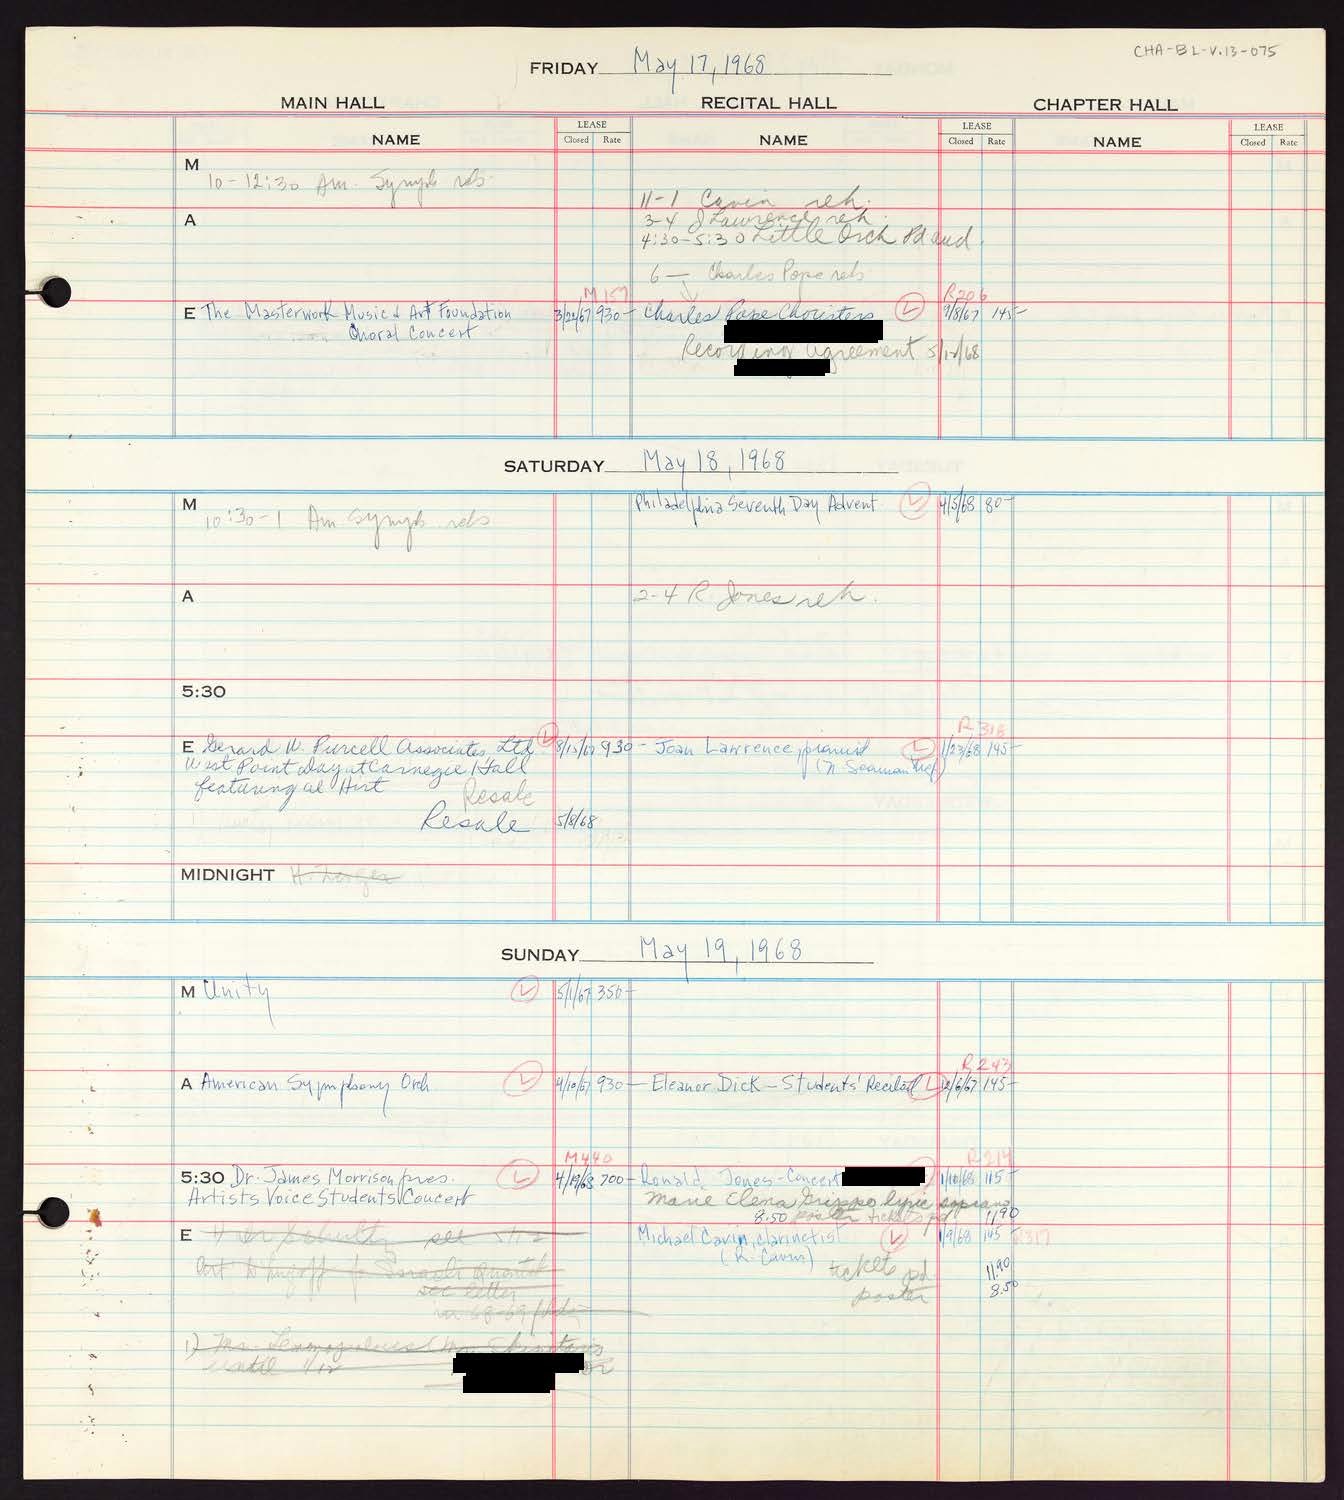 CHA-BL-V.13-075
FRIDAY May 17, 1968
MAIN HALL RECITAL HALL CHAPTER HALL
NAME LEASE Closed Rate NAME LEASE Closed Rate NAME LEASE Closed Rate
M
10-12:30 Am. Symph reh.
11-1 Cavin reh.
A 3-4 J Lawrence reh.
4:30-5:30 Little Orch Bd aud.
6 — Charles Pope reh
M 157 R206
E The Masterwork Music & Art Foundation 3/20/67 930- Charles Pope Choristers L 9/8/67 145-
Choral Concert
Recording Agreement 5/1-/68
SATURDAY May 18, 1968
M Philadelphia Seventh Day Advent L 4/5/68 80-
10:30-1 Am Symph reh
A 2-4 R. Jones reh.
5:30
R 318
E Gerard W. Purcell Associates, Ltd L 8/15/67 930- Joan Lawrence, pianist L 1/23/68 145-
West Point Day at Carnegie Hall (N. Seaman Mgr)
featuring Al Hirt
Resale
Resale 5/8/68
MIDNIGHT
SUNDAY May 19, 1968
M Unity L 5/1/67 350-
R 243
A American Symphony Orch L 4/10/67 930- Eleanor Dick - Students' Recital L 12/6/67 145-
M440 R214
5:30 Dr. James Morrison pres. L 4/19/68 700- Ronald Jones - Concert 1/10/68 115-
Artists Voice Students Concert Marie Elena Grippo lyric soprano
8.50 poster tickets pd 11.90
E H der Schultz see 5/12 Michael Cavin, clarinetist L 1/9/68 145 R317
(R. Cavin) tickets pd. 11.90
for Israeli Quartet
see letter poster 8.50
in 68-69
1) Mr.
until 1/12 or